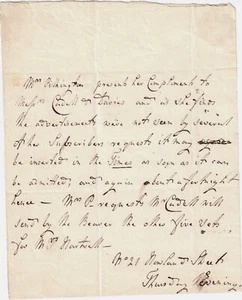 Mrs Pilkington presents her Compliments to
Messrs Cadell & Davies and as she finds
the advertisements were not seen by several
of her Subscribers requests it may
be inserted in the Times as soon as it can
be admitted; and again about a fortnight
hence — Mrs P. requests Mr Cadell will
send by the Bearer the other five Vols.
for Mrs Hartwell —
No 21 Howland Street
Thursday Evening